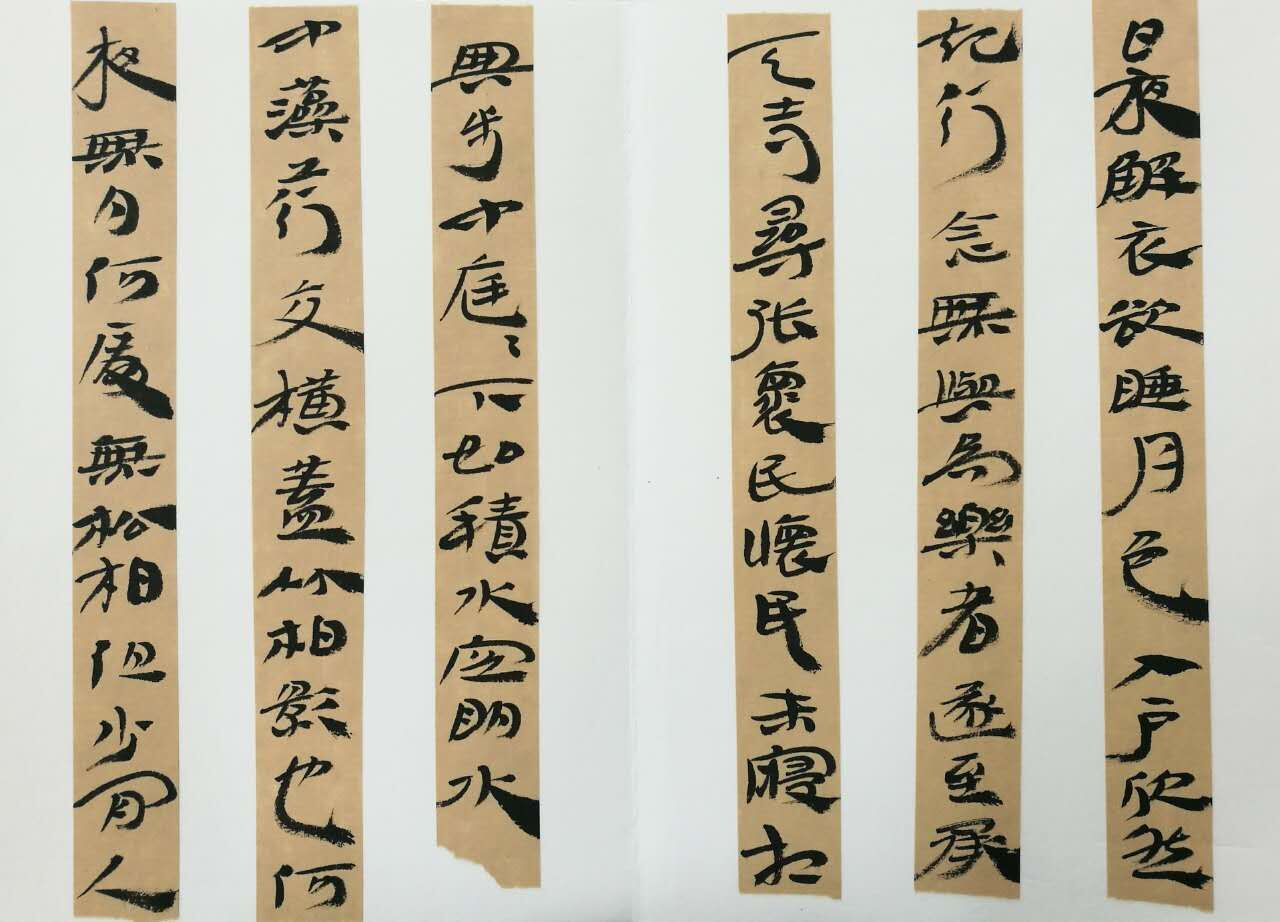 日夜解衣欲睡月色入户欣然
起行念無與為樂者遂至承
天寺尋张褱民懷民未寢相
與步中庭〻下如積水空明水
中藻荇交橫蓋竹柏影也何
夜無月何處無松柏但少閒人